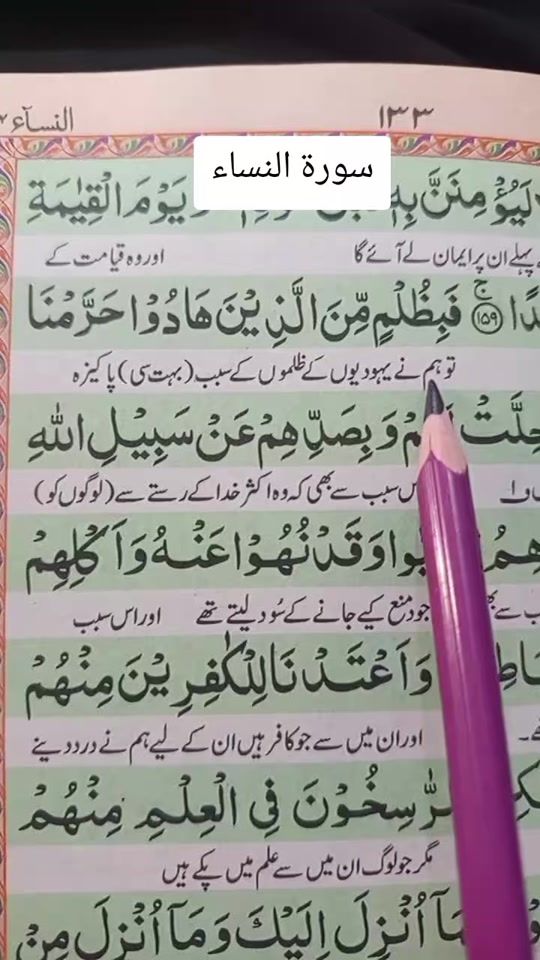 النسآء
١٣٣
سورة النساء
لَيُؤْمِنَنَّ بِهٖ يَوْمَ الْقِيٰمَةِ
پہلے ان پر ایمان لے آئے گا اور وہ قیامت کے
ج ﴿١٥٩﴾ فَبِظُلْمٍ مِّنَ الَّذِيْنَ هَادُوْا حَرَّمْنَا
تو ہم نے یہودیوں کے ظلموں کے سبب (بہت سی) پاکیزہ
وَبِصَدِّهِمْ عَنْ سَبِيْلِ اللّٰهِ
سبب سے بھی کہ وہ اکثر خدا کے رستے سے (لوگوں کو)
وَقَدْ نُهُوْا عَنْهُ وَاَكْلِهِمْ
جود منع کیے جانے کے سُود لیتے تھے اور اس سبب
وَاَعْتَدْنَا لِلْكٰفِرِيْنَ مِنْهُمْ
اور ان میں سے جو کافر ہیں ان کے لیے ہم نے درد دینے
رّٰسِخُوْنَ فِي الْعِلْمِ مِنْهُمْ
مگر جو لوگ ان میں سے علم میں پکے ہیں
اُنْزِلَ اِلَيْكَ وَمَآ اُنْزِلَ مِنْ